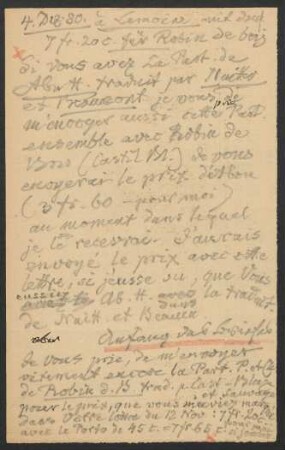 4. Dez. 80. à Lemoine mit
7 fr. 20 c für Robin de bois
Si vous avez La Part. de
Abu H. traduit par Nuitter
et Beaumont je vous prie
m'envoyer aussi cette Part.
ensemble avec Robin de
Bois (Castil Bl.) Je vous
enverrai le prix
(3 frs. 60 – pour moi)
au moment dans lequel
je le recevrai. J'aurais
envoyé le prix avec cette
lettre, si j'eusse su, que vous
Ab. H. avec la traduct.
de Nuitt et Beaum
Anfang des Briefes
Je vous prie, de m'envoyer
vitement encore la Part. P. et Ch.
de Robin d. b. trad. p. Cast-Blaze
et Sauvage
pour le prix, que vous m'aviez marqué
dans votre lettre du 12 Nov: 7 fr. 20 c
avec le Porto de 45 c. = 7 fr 65 c.